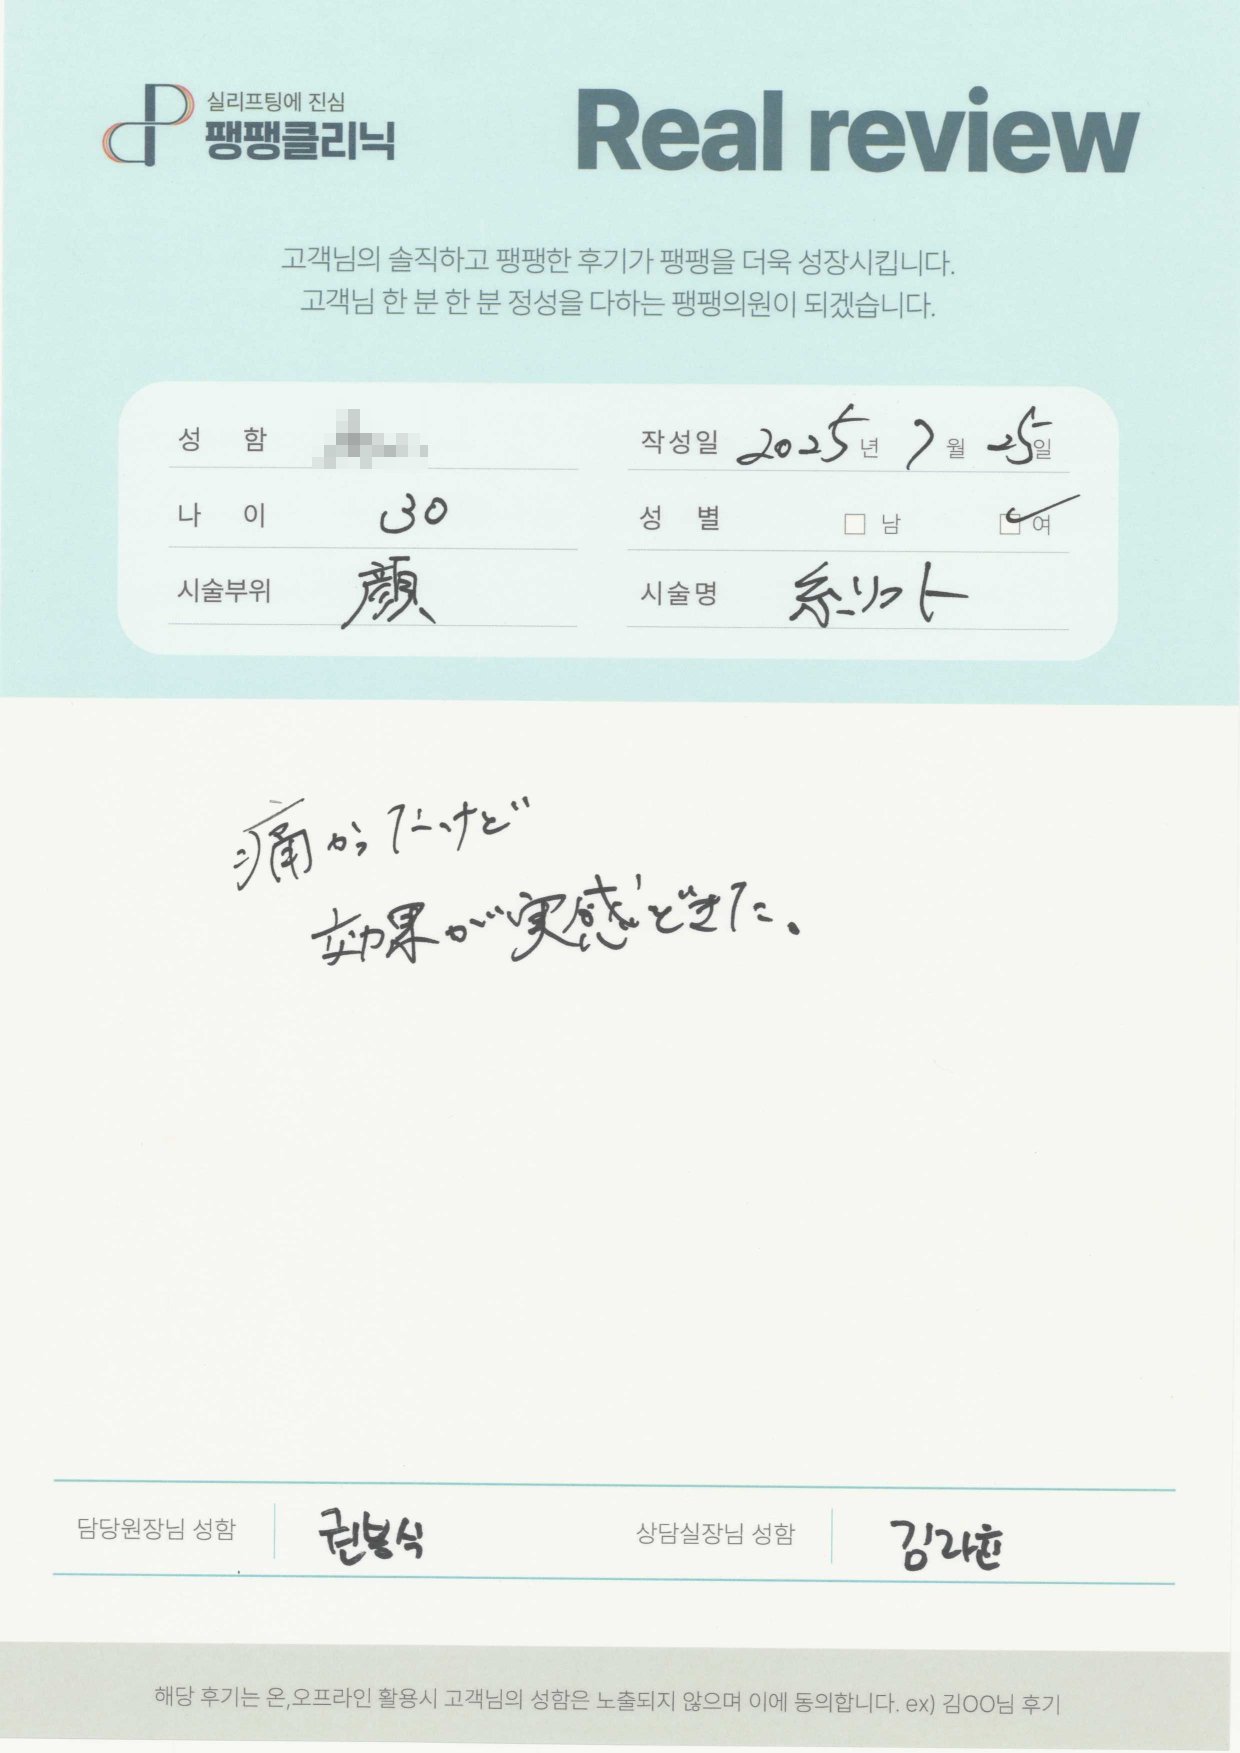 실리프팅에 진심
팽팽클리닉
Real review
고객님의 솔직하고 팽팽한 후기가 팽팽을 더욱 성장시킵니다.
고객님 한 분 한 분 정성을 다하는 팽팽의원이 되겠습니다.
성 함
작성일 2025년 7월 25일
나 이 30
성 별 남 여
시술부위 顔
시술명 糸リフト
痛かったけど
効果が実感できた。
담당원장님 성함 권봉식
상담실장님 성함 김라윤
해당 후기는 온,오프라인 활용시 고객님의 성함은 노출되지 않으며 이에 동의합니다. ex) 김OO님 후기